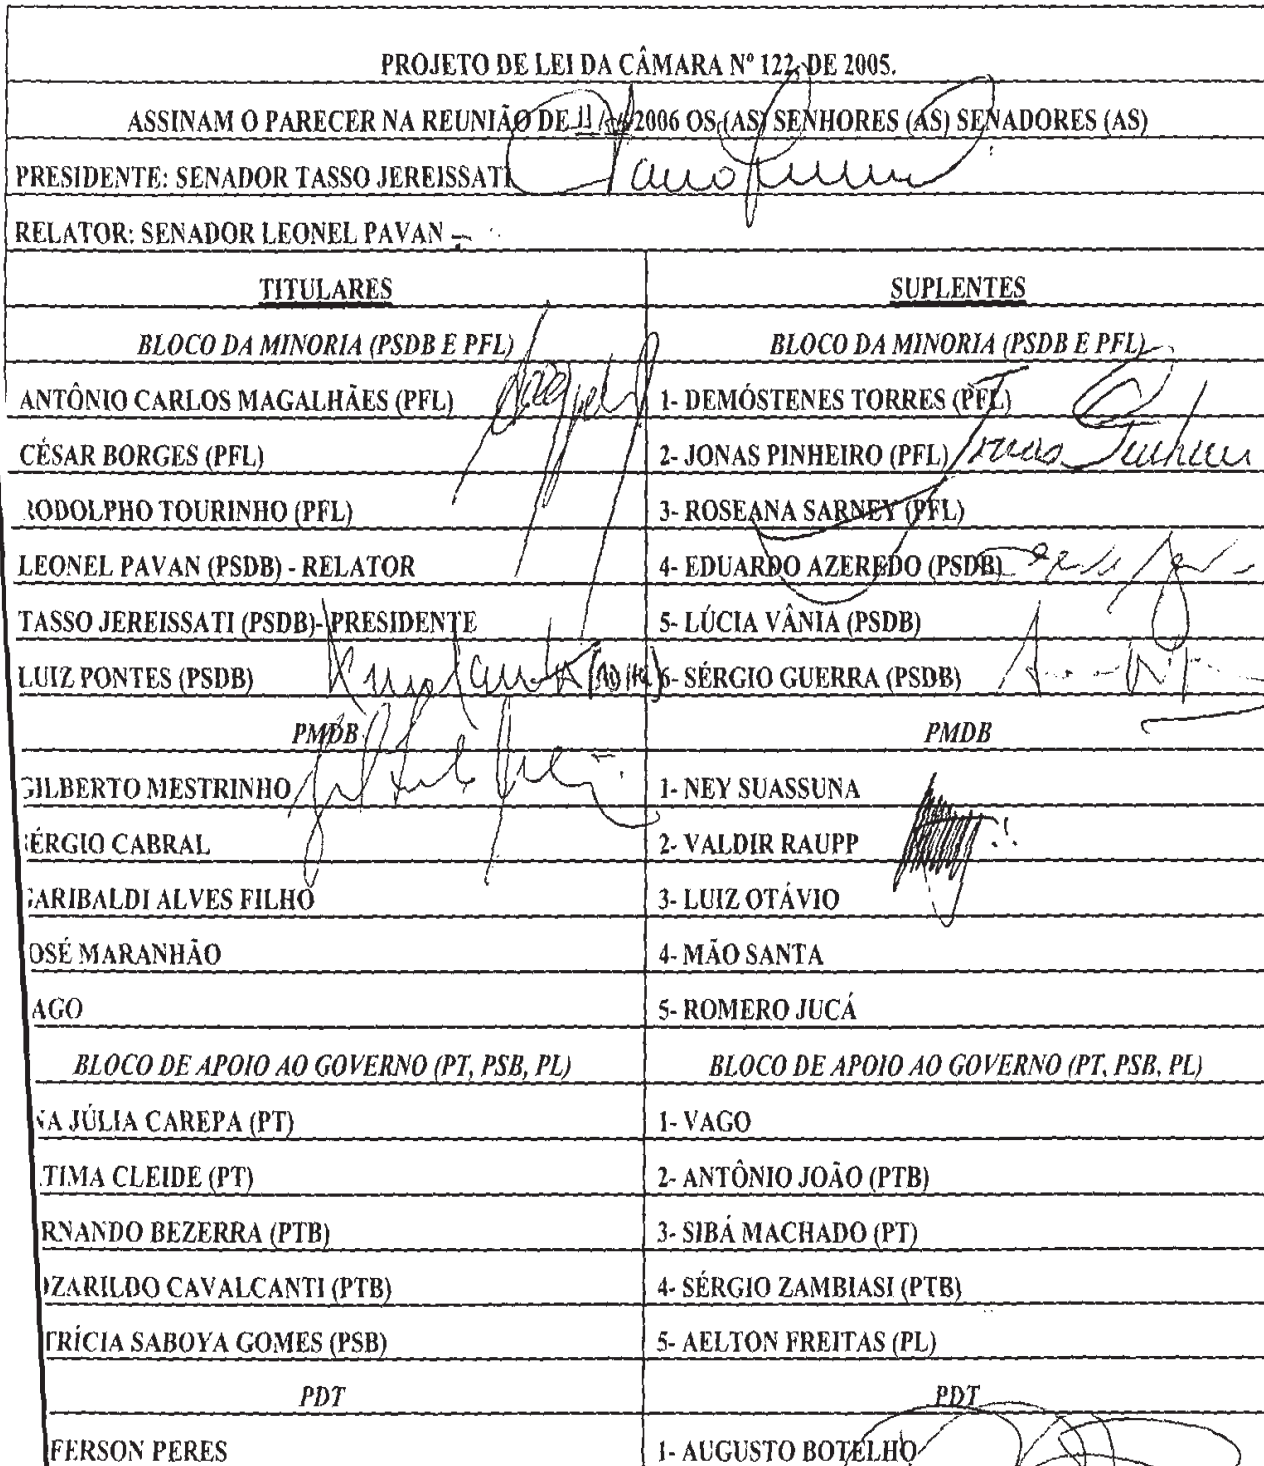 PROJETO DE LEI DA CÂMARA Nº 122, DE 2005.
ASSINAM O PARECER NA REUNIÃO DE 11/ /2006 OS (AS) SENHORES (AS) SENADORES (AS)
PRESIDENTE: SENADOR TASSO JEREISSATI
RELATOR: SENADOR LEONEL PAVAN
TITULARES SUPLENTES
BLOCO DA MINORIA (PSDB E PFL) BLOCO DA MINORIA (PSDB E PFL)
ANTÔNIO CARLOS MAGALHÃES (PFL) 1- DEMÓSTENES TORRES (PFL)
CÉSAR BORGES (PFL) 2- JONAS PINHEIRO (PFL) Jonas Pinheiro
RODOLPHO TOURINHO (PFL) 3- ROSEANA SARNEY (PFL)
LEONEL PAVAN (PSDB) - RELATOR 4- EDUARDO AZEREDO (PSDB)
TASSO JEREISSATI (PSDB)- PRESIDENTE 5- LÚCIA VÂNIA (PSDB)
LUIZ PONTES (PSDB) 6- SÉRGIO GUERRA (PSDB)
PMDB PMDB
GILBERTO MESTRINHO 1- NEY SUASSUNA
ÉRGIO CABRAL 2- VALDIR RAUPP
ARIBALDI ALVES FILHO 3- LUIZ OTÁVIO
OSÉ MARANHÃO 4- MÃO SANTA
AGO 5- ROMERO JUCÁ
BLOCO DE APOIO AO GOVERNO (PT, PSB, PL) BLOCO DE APOIO AO GOVERNO (PT, PSB, PL)
NA JÚLIA CAREPA (PT) 1- VAGO
TIMA CLEIDE (PT) 2- ANTÔNIO JOÃO (PTB)
RNANDO BEZERRA (PTB) 3- SIBÁ MACHADO (PT)
OZARILDO CAVALCANTI (PTB) 4- SÉRGIO ZAMBIASI (PTB)
TRÍCIA SABOYA GOMES (PSB) 5- AELTON FREITAS (PL)
PDT PDT
FERSON PERES 1- AUGUSTO BOTELHO